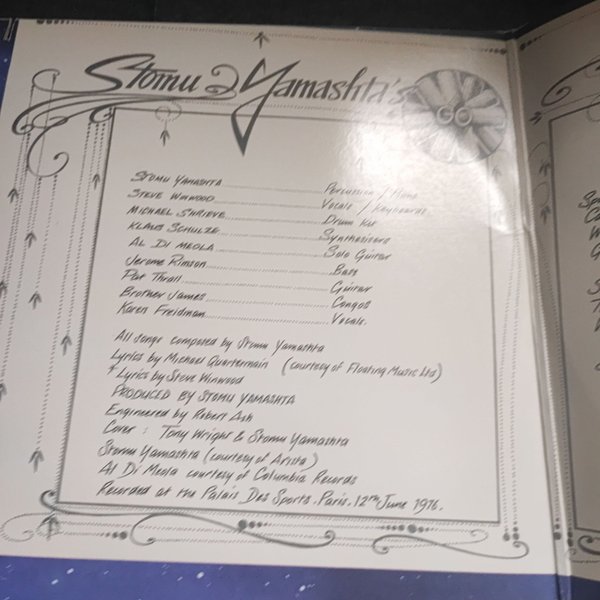 Stomu Yamashta's
GO
Stomu Yamashta.......... Percussion / Piano
Steve Winwood.......... Vocals / Keyboards
Michael Shrieve.......... Drum Kit
Klaus Schulze.......... Synthesisers
Al Di Meola.......... Solo Guitar
Jerome Rimson.......... Bass
Pat Thrall.......... Guitar
Brother James.......... Congas
Karen Freidman.......... Vocals.
All songs composed by Stomu Yamashta
Lyrics by Michael Quartermain (courtesy of Floating Music Ltd)
* Lyrics by Steve Winwood
PRODUCED BY STOMU YAMASHTA
Engineered by Robert Ash
Cover : Tony Wright & Stomu Yamashta
Stomu Yamashta (courtesy of Arista)
Al Di Meola courtesy of Columbia Records
Recorded at the Palais Des Sports, Paris, 12th June 1976.